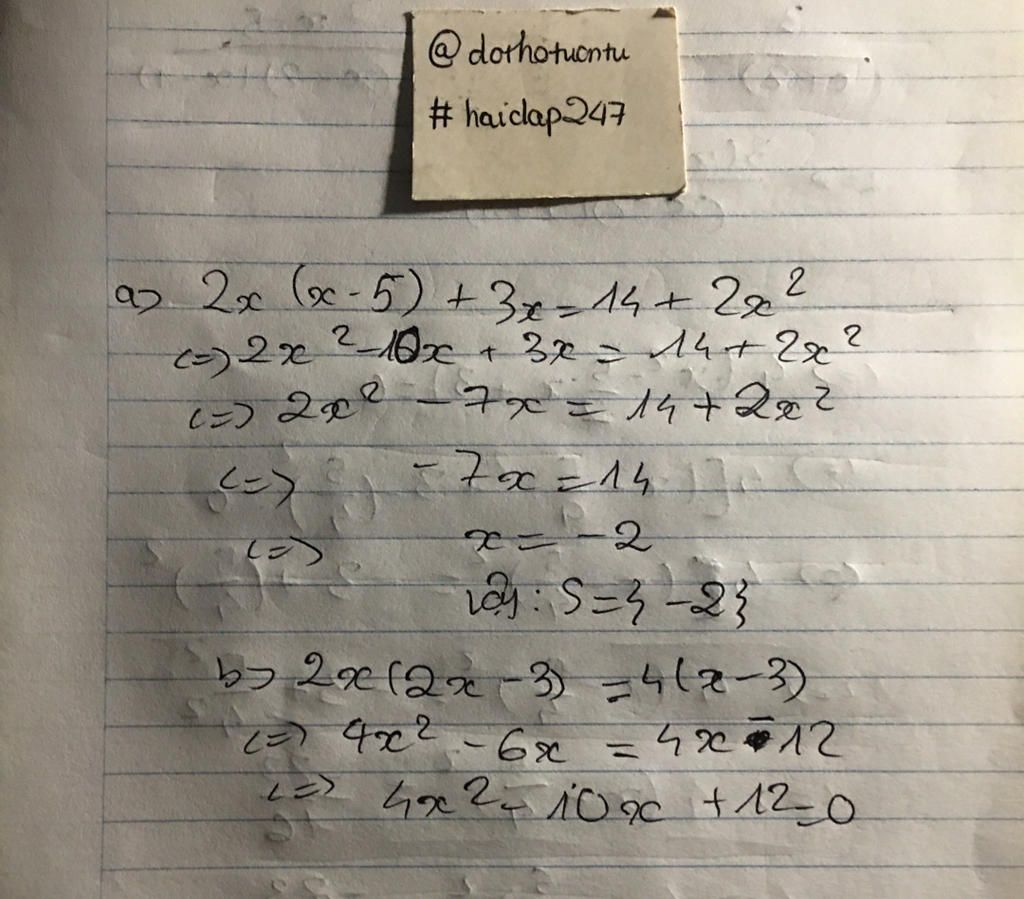 @ dorhotuontu
# haidap247
a> 2x (x-5) + 3x = 14 + 2x²
<=> 2x² -10x + 3x = 14 + 2x²
<=> 2x² - 7x = 14 + 2x²
<=> -7x = 14
<=> x = -2
Vậy : S = } -2}
b> 2x(2x - 3) = 4(x - 3)
<=> 4x² - 6x = 4x - 12
<=> 4x² - 10x + 12 = 0